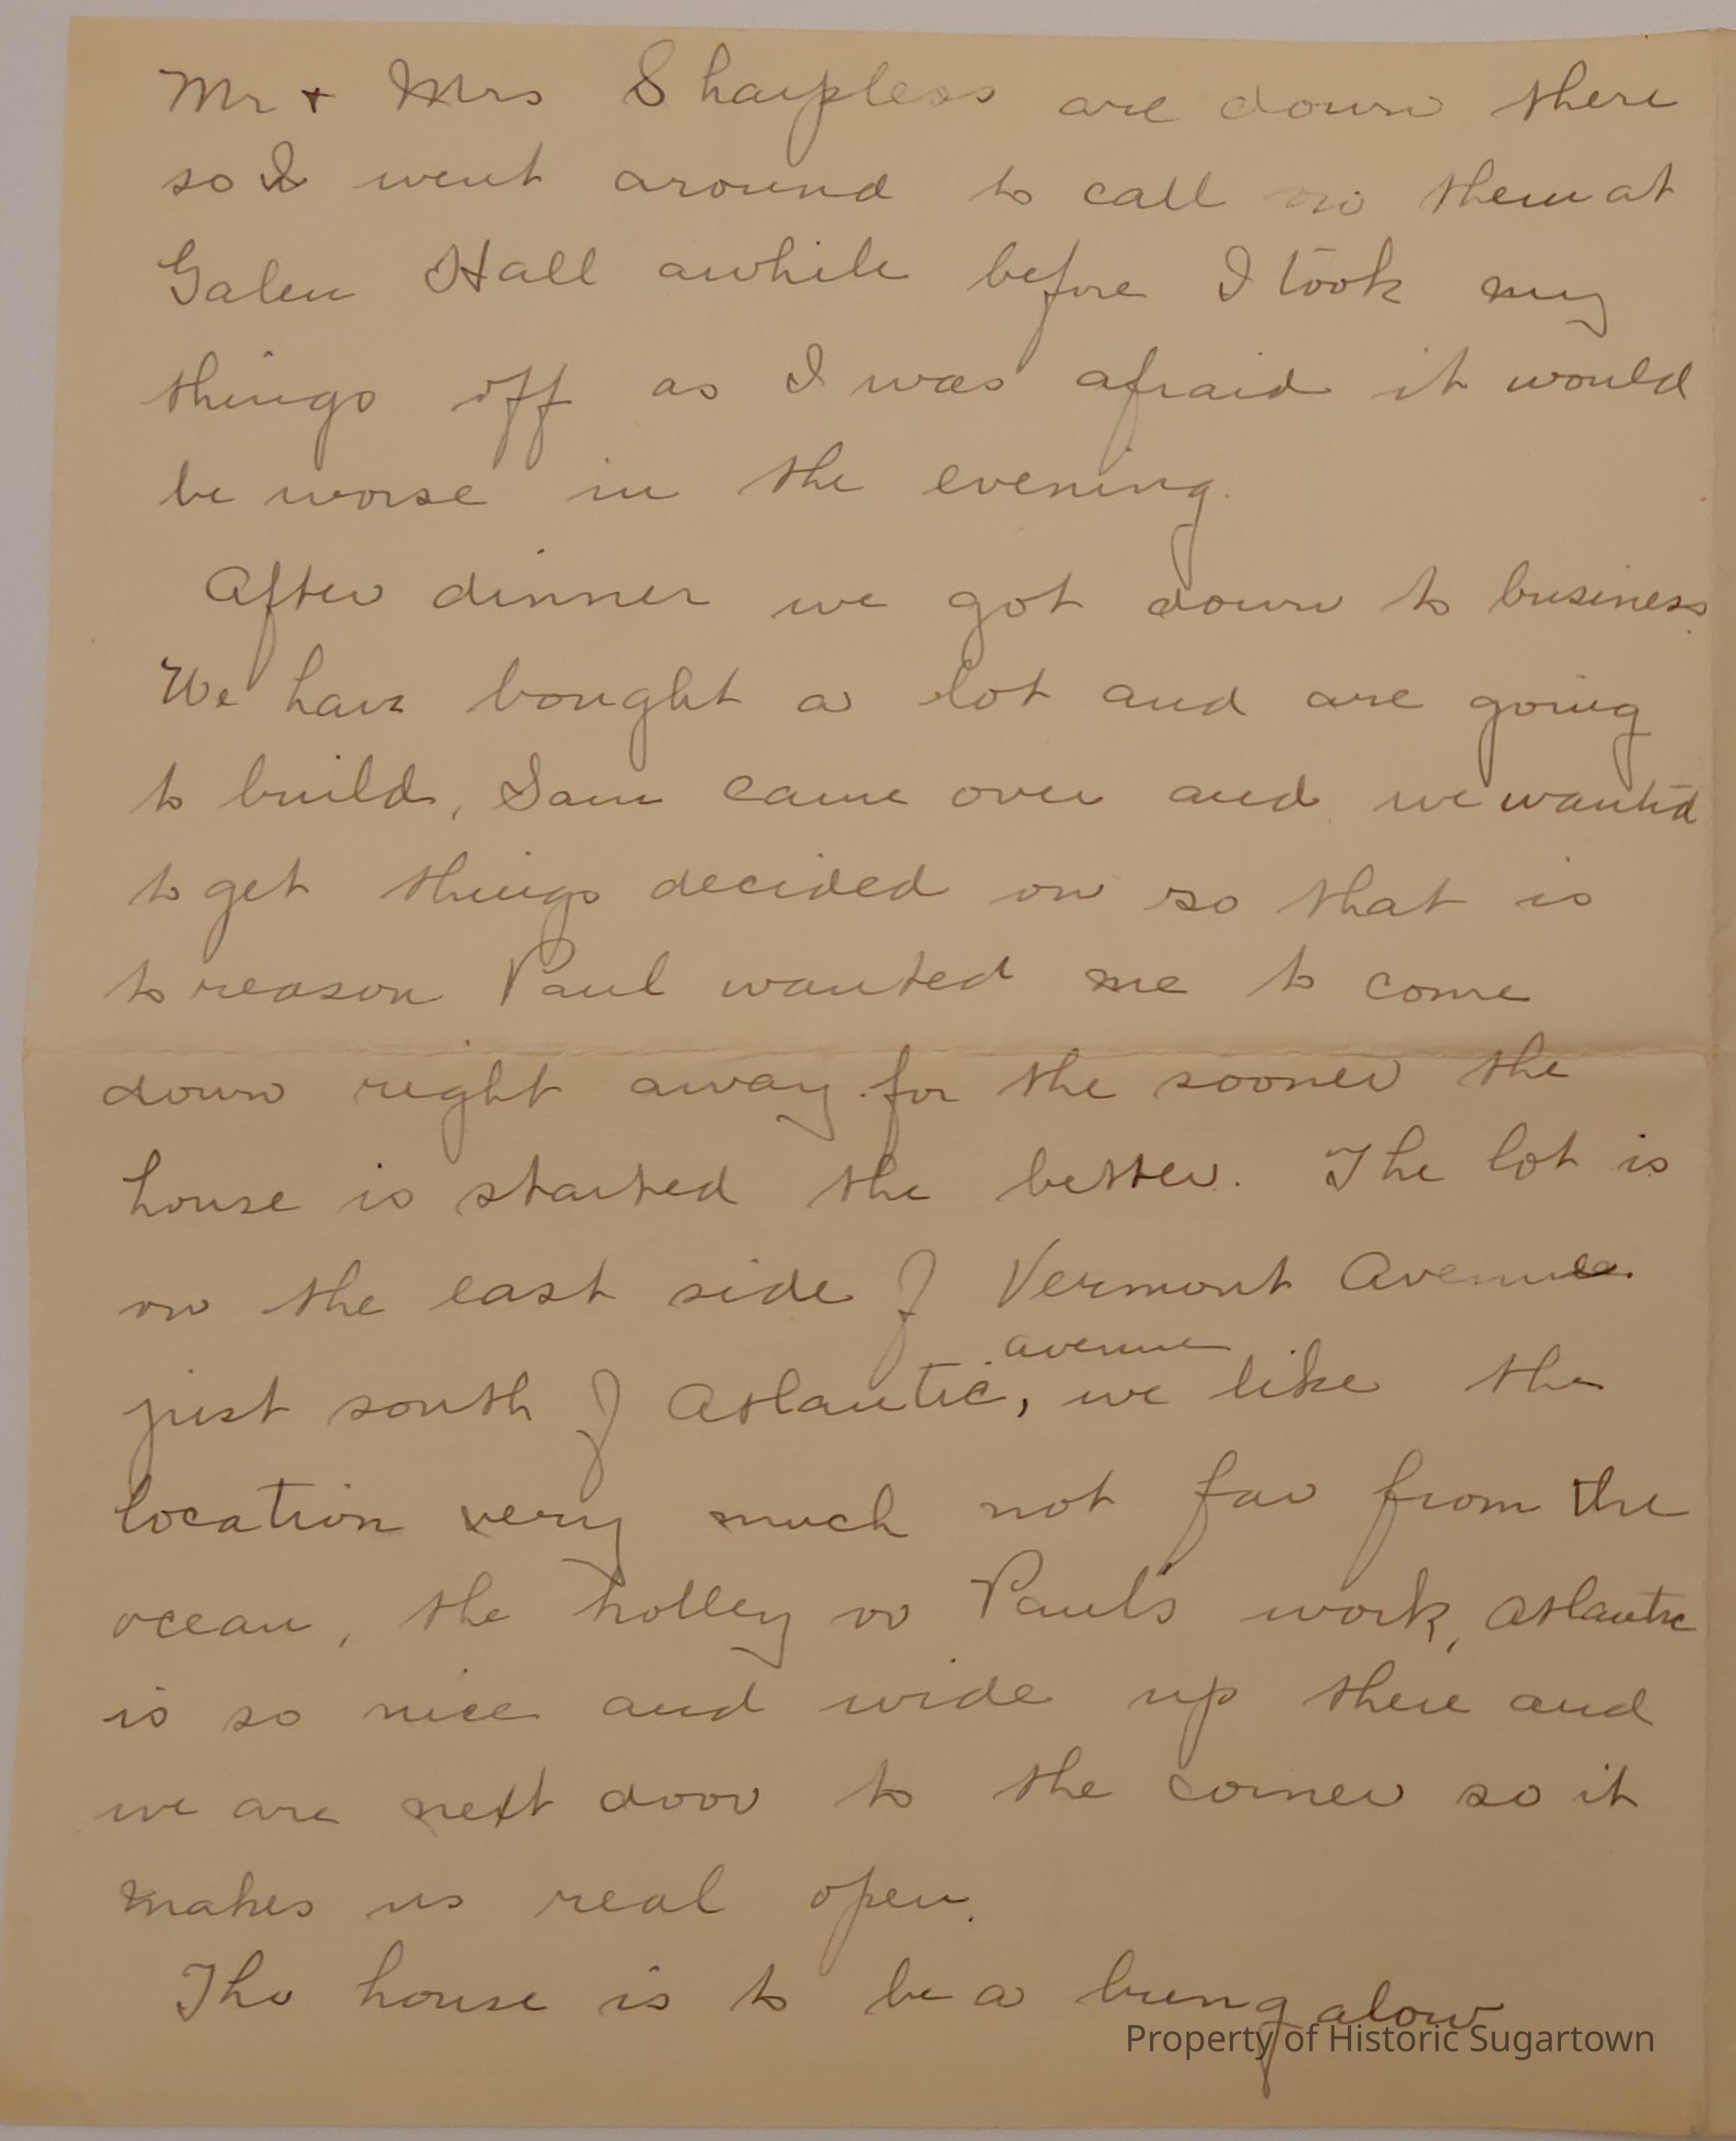 Mr + Mrs Sharpless are down there
so I went around to call on them at
Galen Hall awhile before I took my
things off as I was afraid it would
be worse in the evening.
After dinner we got down to business.
We have bought a lot and are going
to build, Sam came over and we wanted
to get things decided on so that is
to reason Paul wanted me to come
down right away for the sooner the
house is started the better. The lot is
on the east side of Vermont Avenue
avenue
just south of Atlantic, we like the
location very much not far from the
ocean, the trolley or Paul's work, Atlantic
is so nice and wide up there and
we are next door to the corner so it
makes us real open.
The house is to be a bungalow
Property of Historic Sugartown